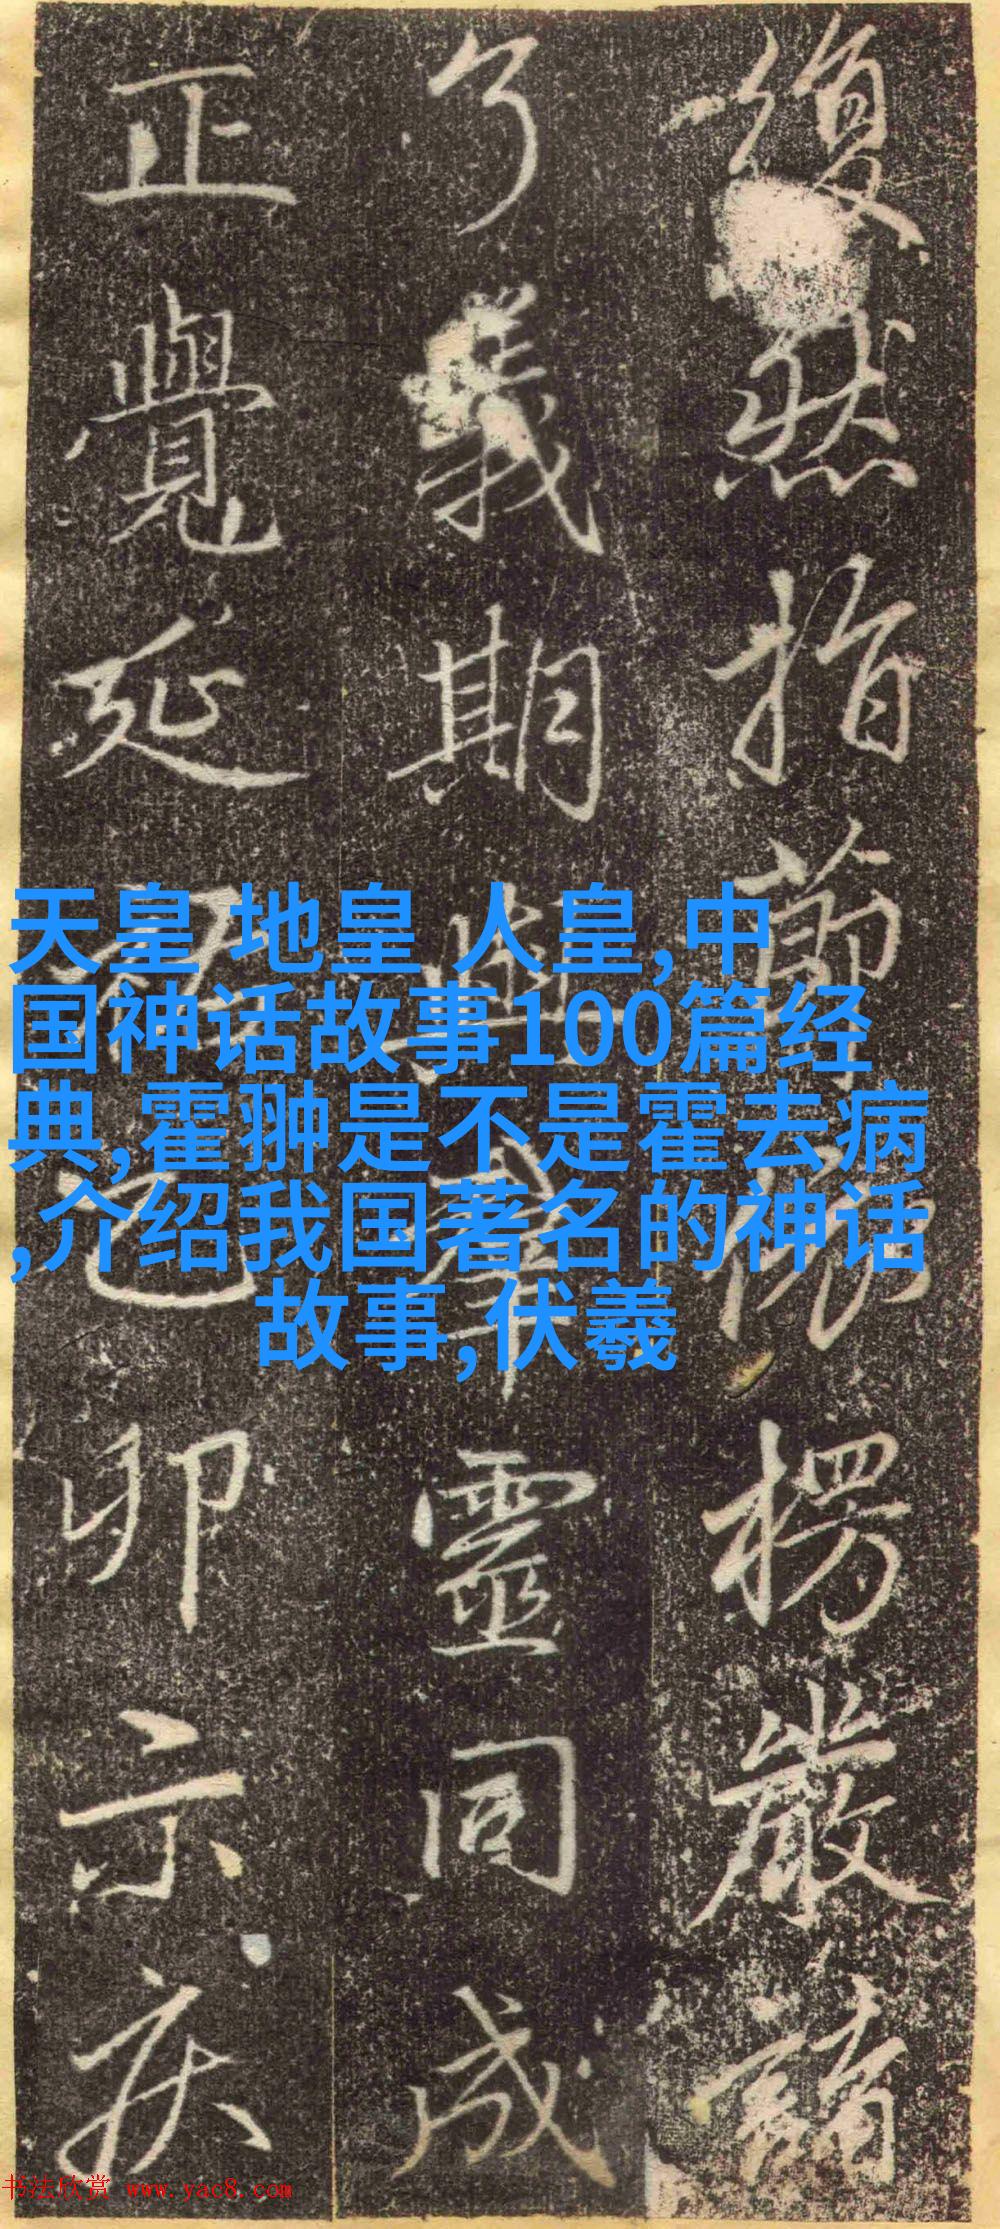 復然指節傍楞嚴諸
了義期與羣靈同成
正覺延君已卯示疾
天皇 地皇 人皇,中
国神话故事100篇经
典,霍翀是不是霍去病
,介绍我国著名的神话
故事,伏羲
书法欣赏 www.yac8.com